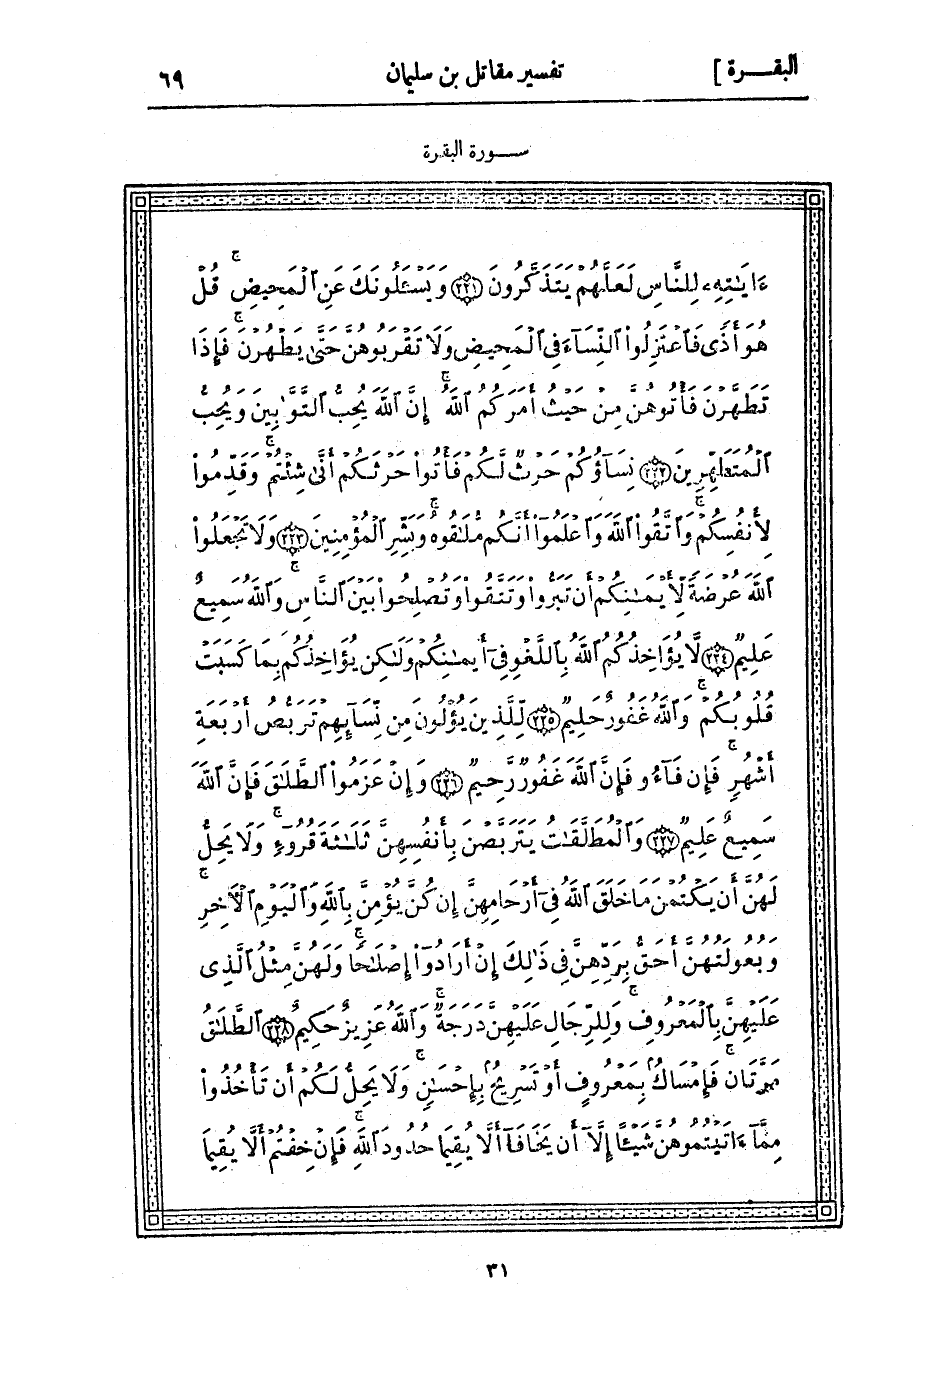 البقـــرة ]
تفسير مقاتل بن سليمان
٦٩
ســـورة البقرة
ءَايَٰتِهِۦ لِلنَّاسِ لَعَلَّهُمْ يَتَذَكَّرُونَ ﴿٢٢١﴾ وَيَسْـَٔلُونَكَ عَنِ ٱلْمَحِيضِ ۖ قُلْ
هُوَ أَذًى فَٱعْتَزِلُوا۟ ٱلنِّسَآءَ فِى ٱلْمَحِيضِ ۖ وَلَا تَقْرَبُوهُنَّ حَتَّىٰ يَطْهُرْنَ ۖ فَإِذَا
تَطَهَّرْنَ فَأْتُوهُنَّ مِنْ حَيْثُ أَمَرَكُمُ ٱللَّهُ ۚ إِنَّ ٱللَّهَ يُحِبُّ ٱلتَّوَّٰبِينَ وَيُحِبُّ
ٱلْمُتَطَهِّرِينَ ﴿٢٢٢﴾ نِسَآؤُكُمْ حَرْثٌ لَّكُمْ فَأْتُوا۟ حَرْثَكُمْ أَنَّىٰ شِئْتُمْ ۖ وَقَدِّمُوا۟
لِأَنفُسِكُمْ ۚ وَٱتَّقُوا۟ ٱللَّهَ وَٱعْلَمُوٓا۟ أَنَّكُم مُّلَٰقُوهُ ۗ وَبَشِّرِ ٱلْمُؤْمِنِينَ ﴿٢٢٣﴾ وَلَا تَجْعَلُوا۟
ٱللَّهَ عُرْضَةً لِّأَيْمَٰنِكُمْ أَن تَبَرُّوا۟ وَتَتَّقُوا۟ وَتُصْلِحُوا۟ بَيْنَ ٱلنَّاسِ ۗ وَٱللَّهُ سَمِيعٌ
عَلِيمٌ ﴿٢٢٤﴾ لَّا يُؤَاخِذُكُمُ ٱللَّهُ بِٱللَّغْوِ فِىٓ أَيْمَٰنِكُمْ وَلَٰكِن يُؤَاخِذُكُم بِمَا كَسَبَتْ
قُلُوبُكُمْ ۗ وَٱللَّهُ غَفُورٌ حَلِيمٌ ﴿٢٢٥﴾ لِّلَّذِينَ يُؤْلُونَ مِن نِّسَآئِهِمْ تَرَبُّصُ أَرْبَعَةِ
أَشْهُرٍ ۖ فَإِن فَآءُو فَإِنَّ ٱللَّهَ غَفُورٌ رَّحِيمٌ ﴿٢٢٦﴾ وَإِنْ عَزَمُوا۟ ٱلطَّلَٰقَ فَإِنَّ ٱللَّهَ
سَمِيعٌ عَلِيمٌ ﴿٢٢٧﴾ وَٱلْمُطَلَّقَٰتُ يَتَرَبَّصْنَ بِأَنفُسِهِنَّ ثَلَٰثَةَ قُرُوٓءٍ ۚ وَلَا يَحِلُّ
لَهُنَّ أَن يَكْتُمْنَ مَا خَلَقَ ٱللَّهُ فِىٓ أَرْحَامِهِنَّ إِن كُنَّ يُؤْمِنَّ بِٱللَّهِ وَٱلْيَوْمِ ٱلْأَخِرِ ۚ
وَبُعُولَتُهُنَّ أَحَقُّ بِرَدِّهِنَّ فِى ذَٰلِكَ إِنْ أَرَادُوٓا۟ إِصْلَٰحًا ۚ وَلَهُنَّ مِثْلُ ٱلَّذِى
عَلَيْهِنَّ بِٱلْمَعْرُوفِ ۚ وَلِلرِّجَالِ عَلَيْهِنَّ دَرَجَةٌ ۗ وَٱللَّهُ عَزِيزٌ حَكِيمٌ ﴿٢٢٨﴾ ٱلطَّلَٰقُ
مَرَّتَانِ ۖ فَإِمْسَاكٌۢ بِمَعْرُوفٍ أَوْ تَسْرِيحٌۢ بِإِحْسَٰنٍ ۗ وَلَا يَحِلُّ لَكُمْ أَن تَأْخُذُوا۟
مِمَّآ ءَاتَيْتُمُوهُنَّ شَيْـًٔا إِلَّآ أَن يَخَافَآ أَلَّا يُقِيمَا حُدُودَ ٱللَّهِ ۖ فَإِنْ خِفْتُمْ أَلَّا يُقِيمَا
٣١